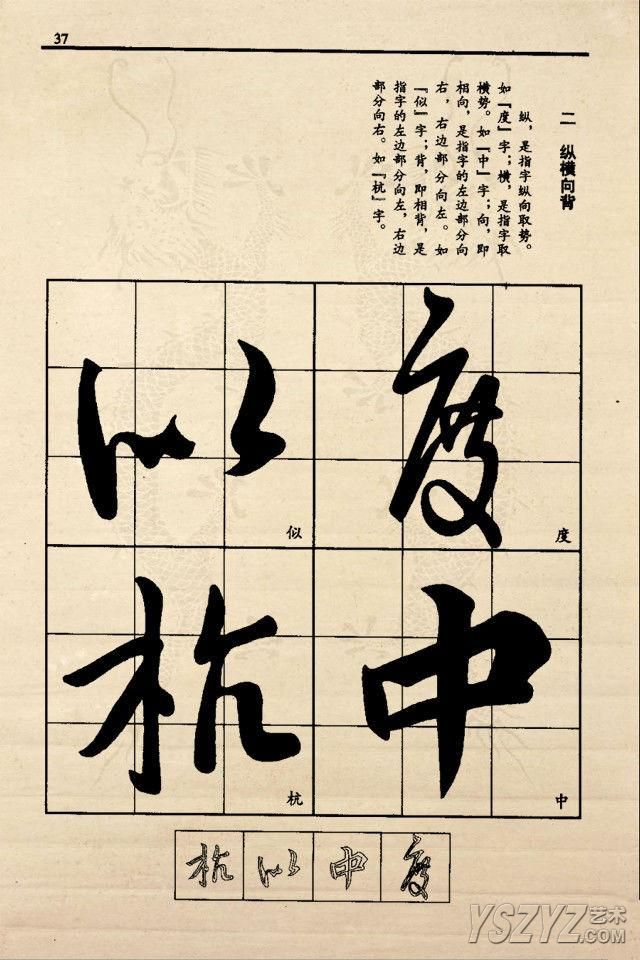 37
二 纵横向背
纵，是指字纵向取势。
如『度』字；横，是指字取
横势。如『中』字；向，即
相向，是指字的左边部分向
右，右边部分向左。如
『似』字；背，即相背，是
指字的左边部分向左，右边
部分向右。如『杭』字。
度
度
中
中
似
似
杭
杭
杭 似 中 度
YSZYZ艺术
.COM